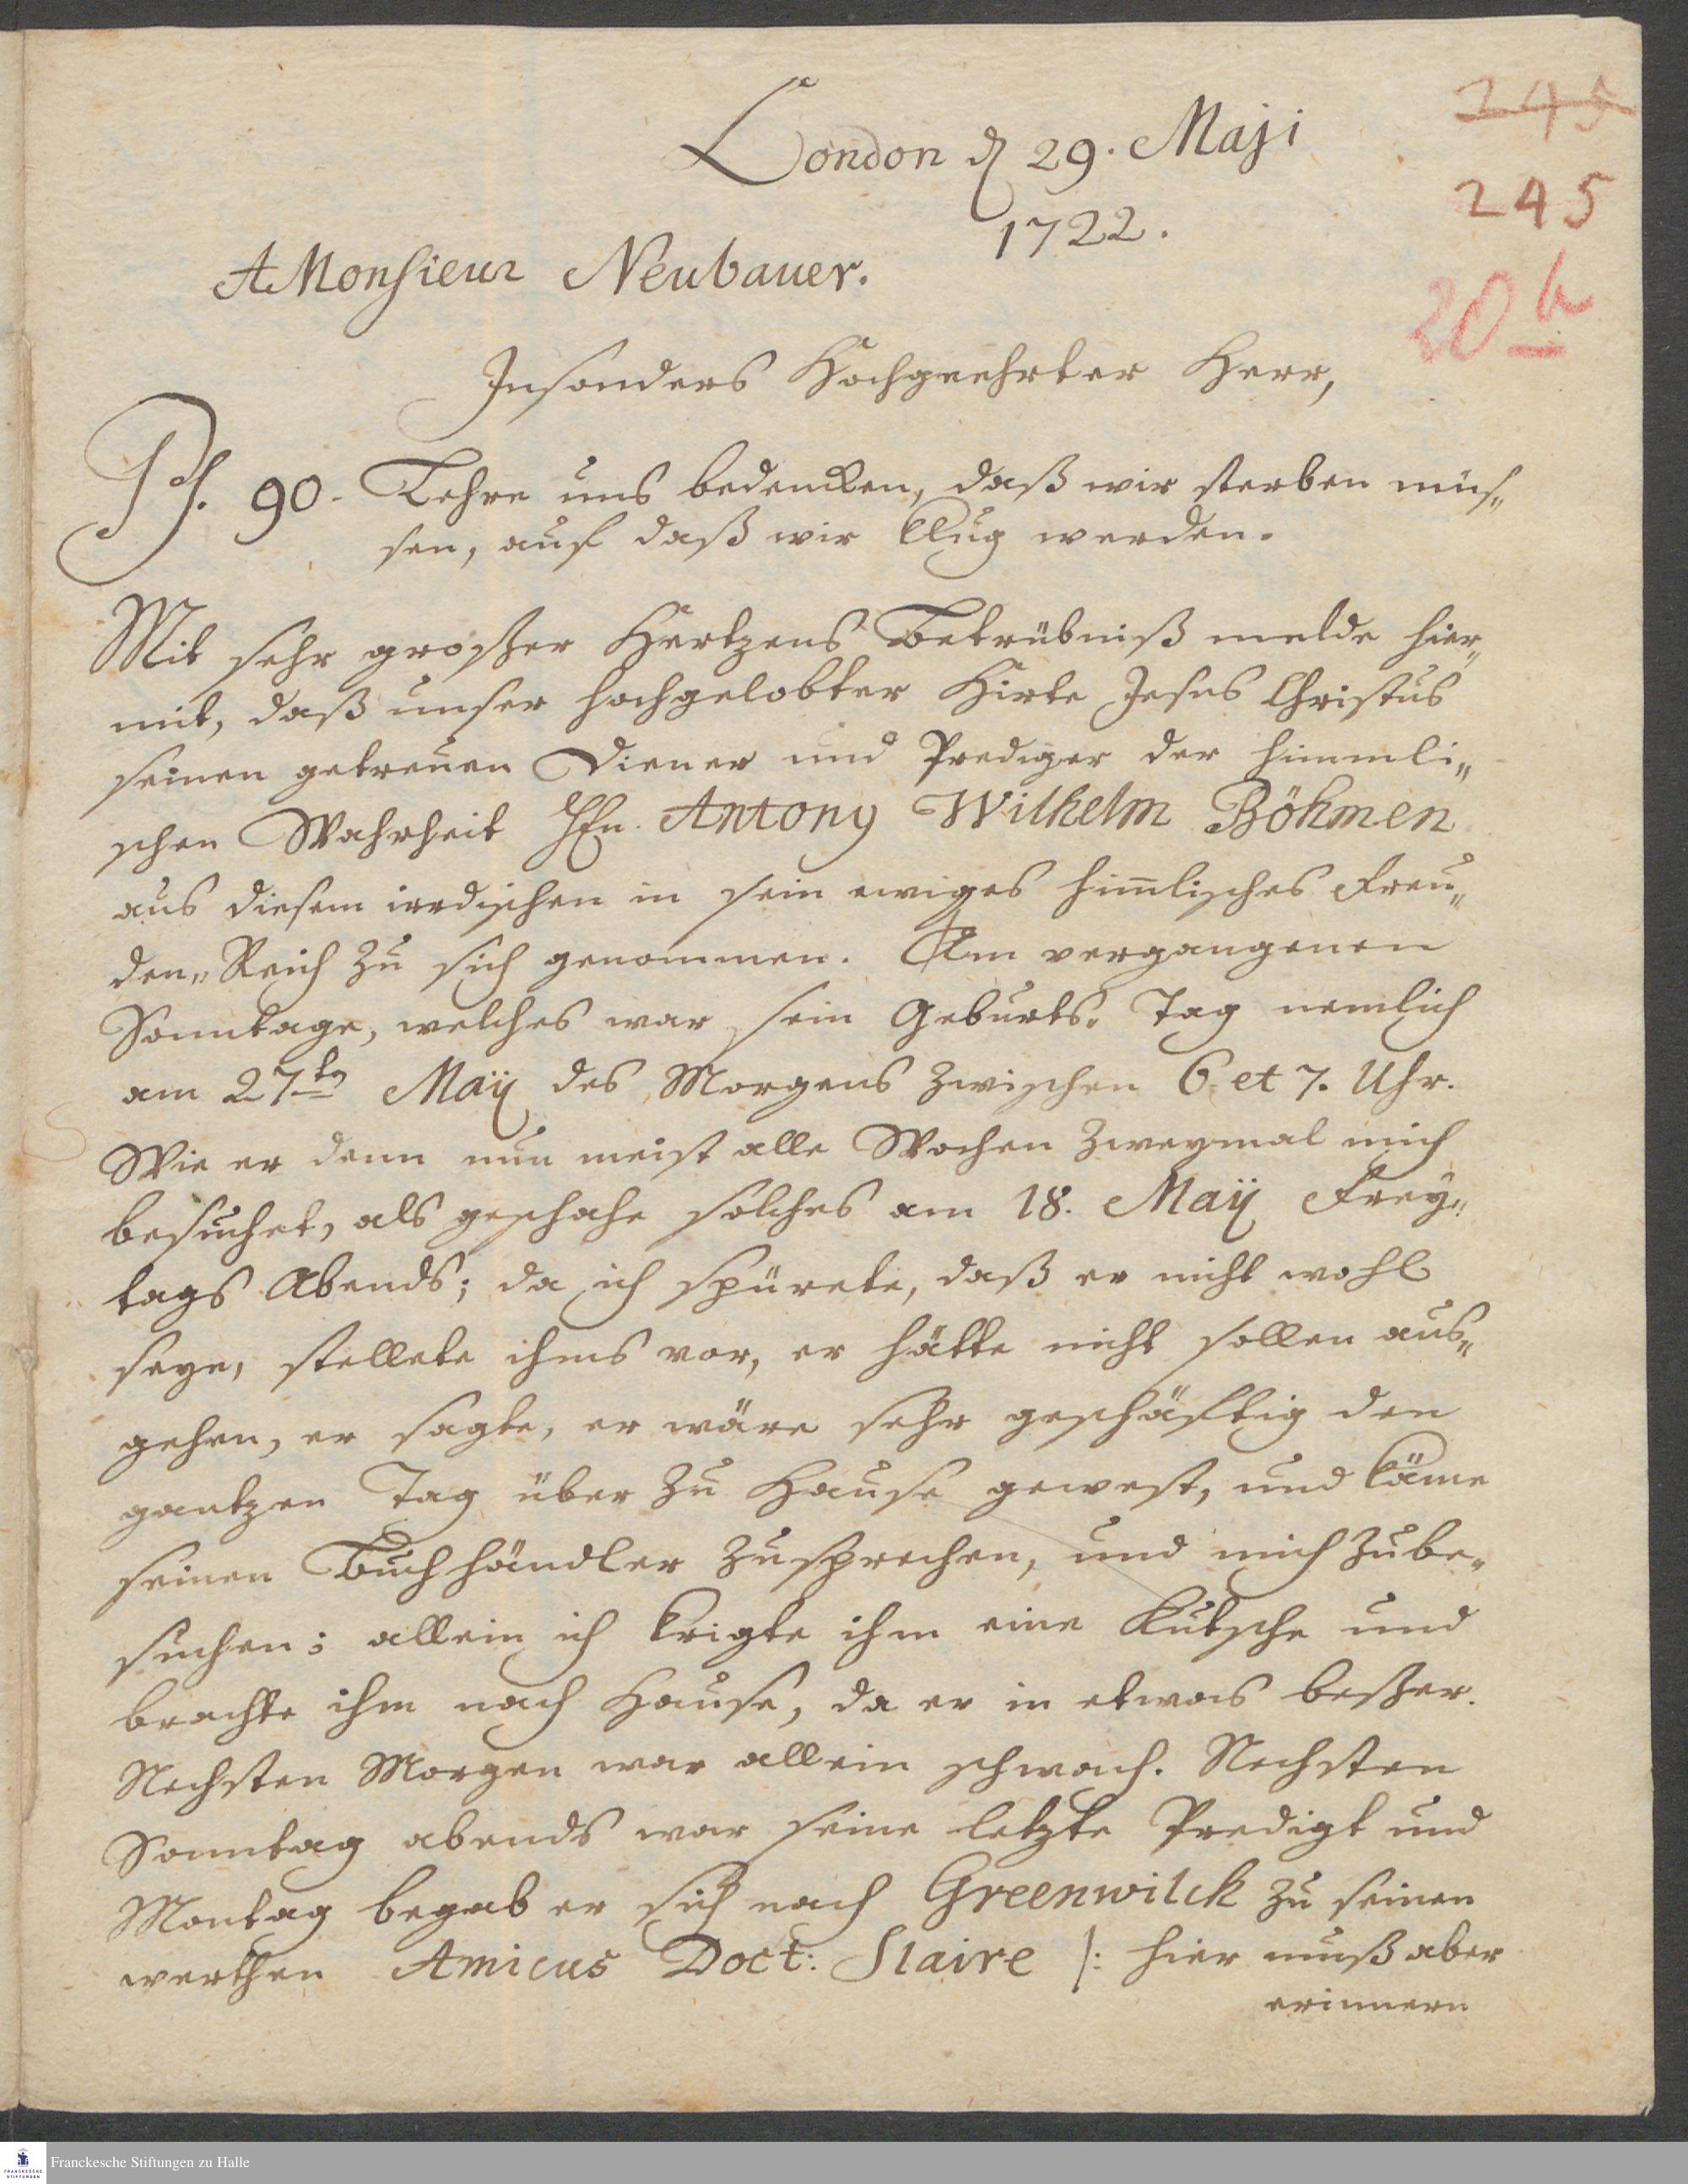 London d 29. Maji
1722.
245
245
20 b
A Monsieur Neubauer.
Insonders Hochgeehrter Herr,
Ps. 90. Lehre uns bedencken, daß wir sterben müs„
sen, auf daß wir klug werden.
Mit sehr großer Hertzens Betrübniß melde hier„
mit, daß unser hochgelobter Hirte Jesus Christus
seinen getreuen Diener und Prediger der himmli„
schen Wahrheit Hn. Antony Wilhelm Böhmen
aus diesem irrdischen in sein ewiges him̄lisches Freu„
den„Reich zu sich genommen. Am vergangenen
Sonntage, welches war sein Geburts. Tag nemlich
am 27ten Maij des Morgens zwischen 6 et 7. Uhr.
Wie er denn nun meist alle Wochen zweymal mich
besuchet, als geschahe solches am 18. Maij Frey„
tags Abends; da ich spürete, daß er nicht wohl
seye, stellete ihms vor, er hätte nicht sollen aus„
gehen, er sagte, er wäre sehr geschäftig den
gantzen Tag über zu Hause gewest, und käme
seinen Buchhändler zusprechen, und mich zube„
suchen; allein ich krigte ihm eine Kutsche und
brachte ihm nach Hause, da er in etwas beßer.
Nechsten Morgen war allein schwach. Nechsten
Sonntag abends war seine letzte Predigt und
Montag begab er sich nach Greenwilck zu seinen
werthen Amicus Doct: Slaire /: hier muß aber
erinnern
Franckesche Stiftungen zu Halle
FRANCKESCHE
STIFTUNGEN